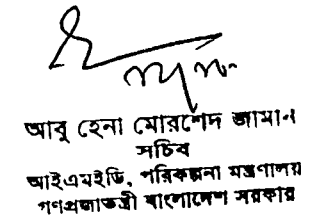 আবু হেনা মোরশেদ জামান
সচিব
আইএমইডি, পরিকল্পনা মন্ত্রণালয়
গণপ্রজাতন্ত্রী বাংলাদেশ সরকার